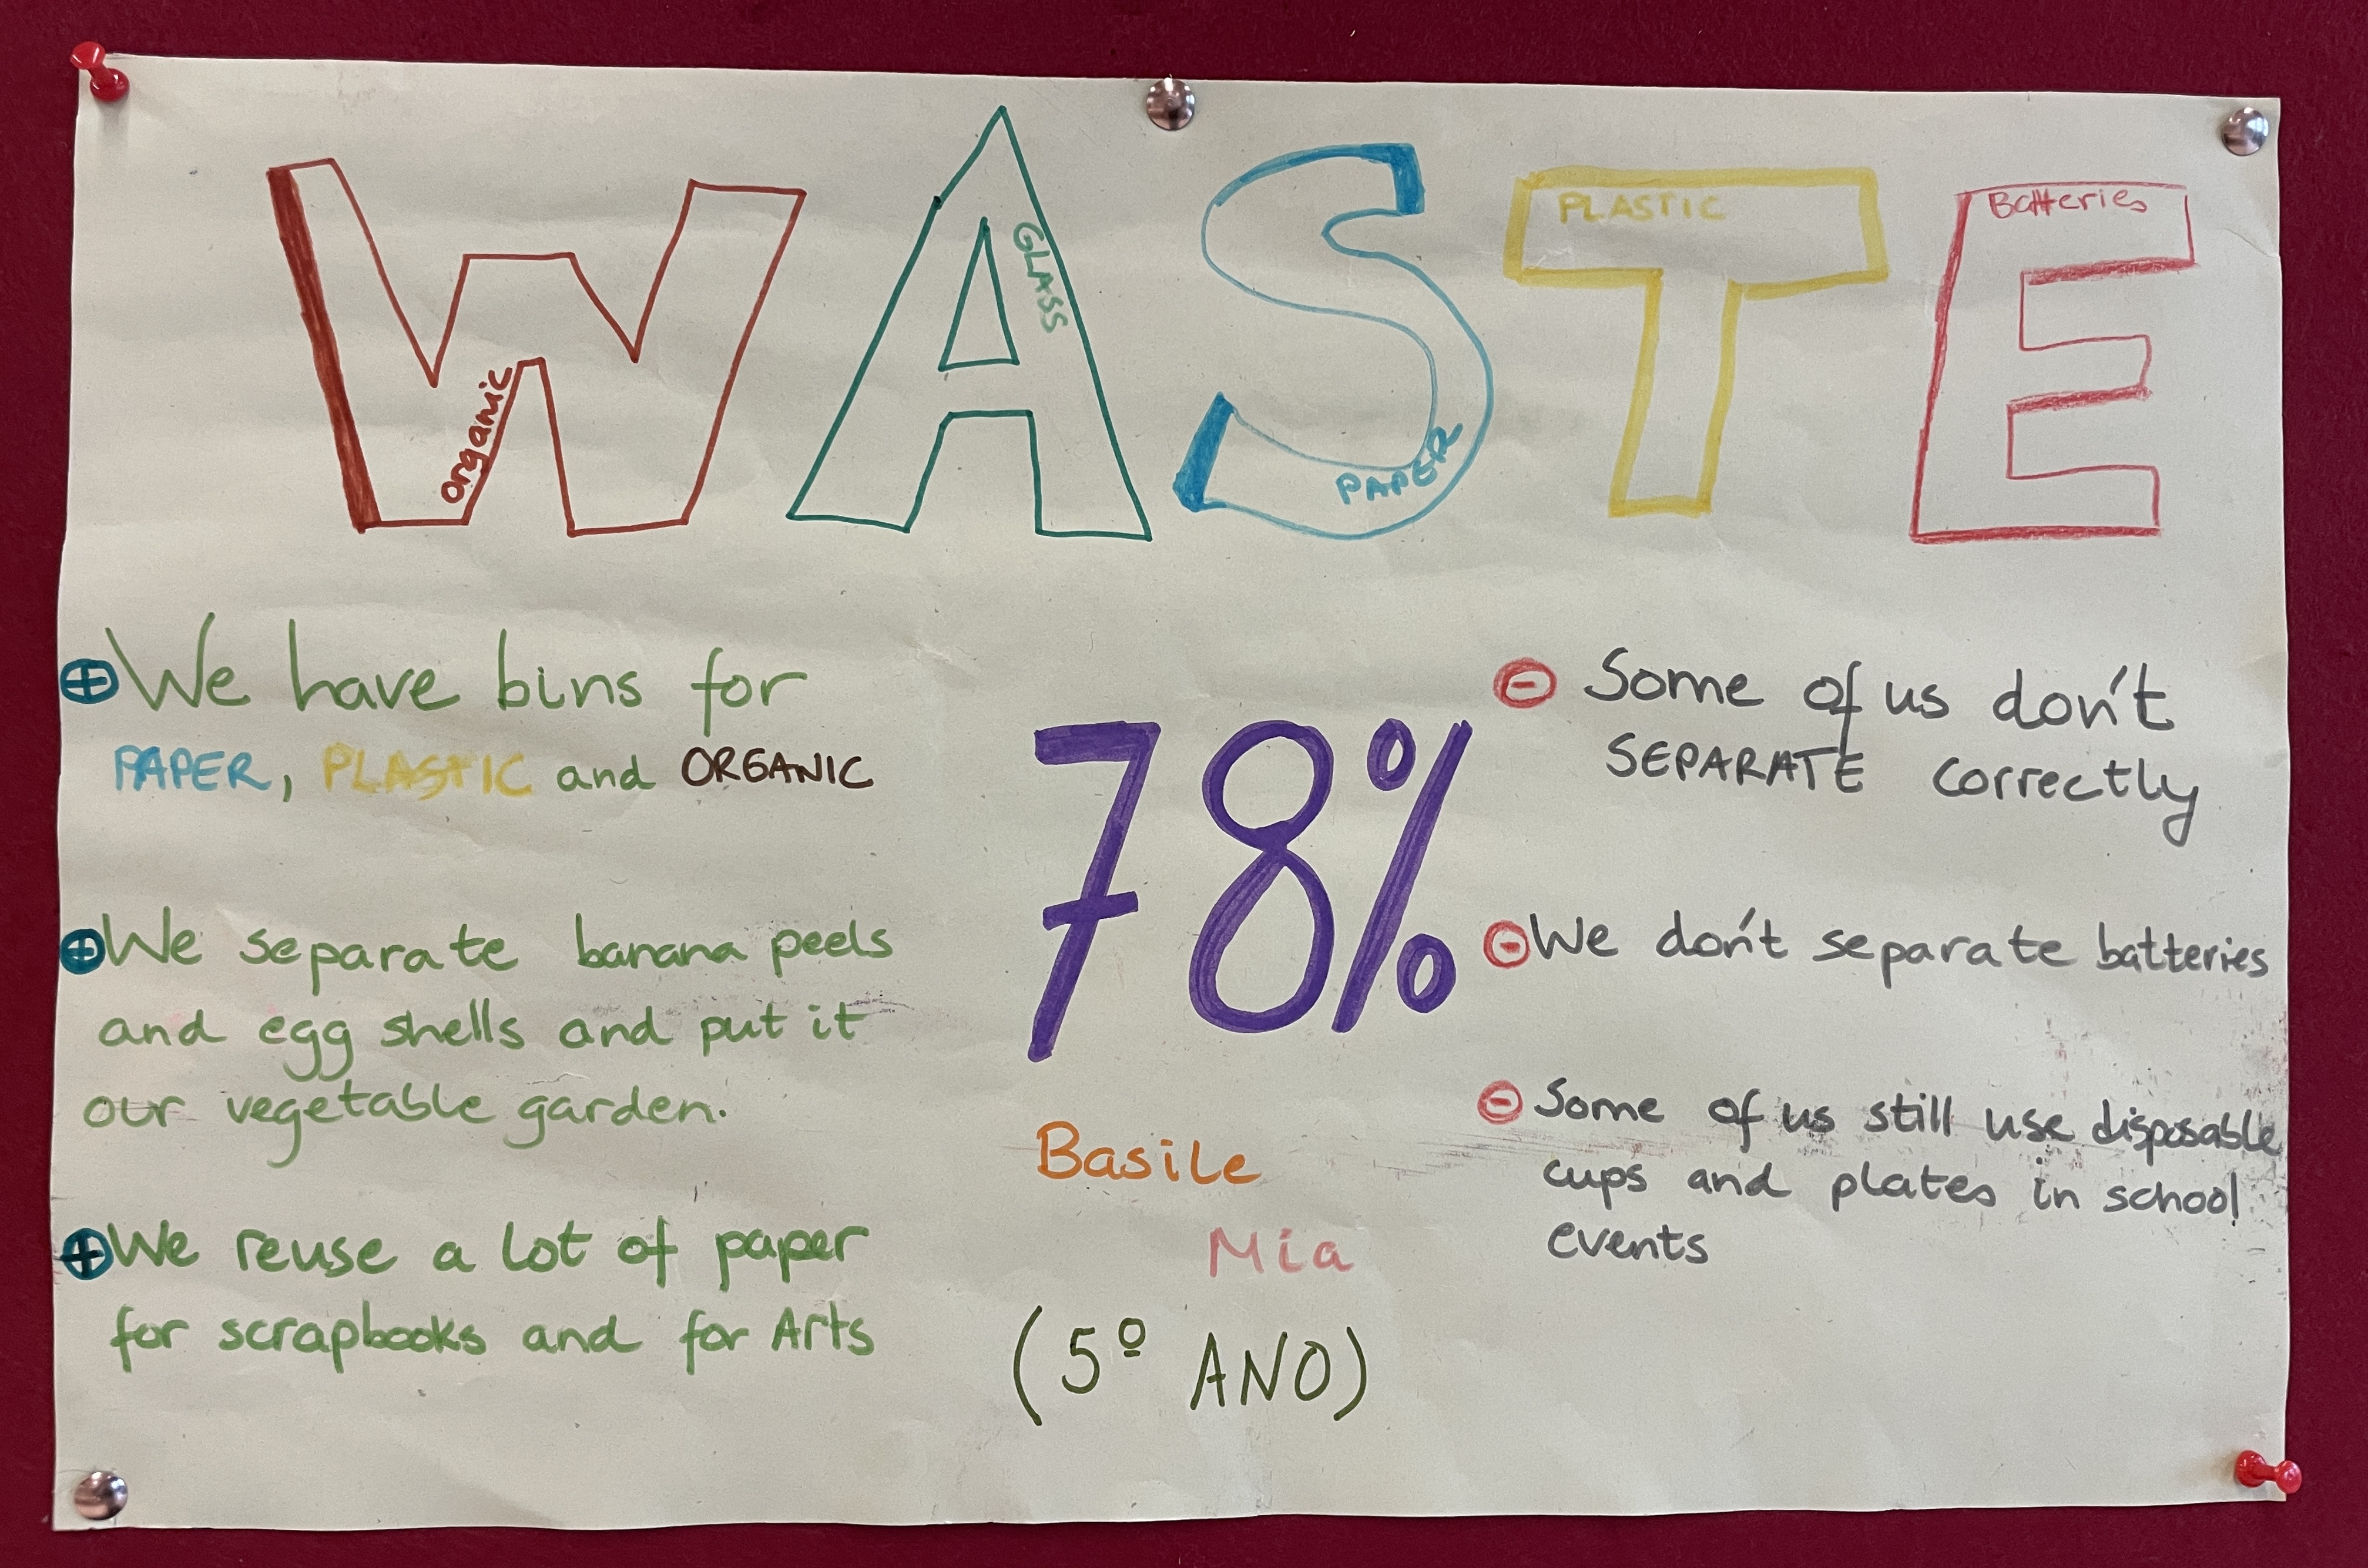 WASTE
organic
GLASS
PAPER
PLASTIC
Batteries
We have bins for
PAPER, PLASTIC and ORGANIC
We separate banana peels
and egg shells and put it
our vegetable garden.
We reuse a lot of paper
for scrapbooks and for Arts
78%
Basile
Mia
(5º ANO)
Some of us don't
SEPARATE correctly
We don't separate batteries
Some of us still use disposable
cups and plates in school
events